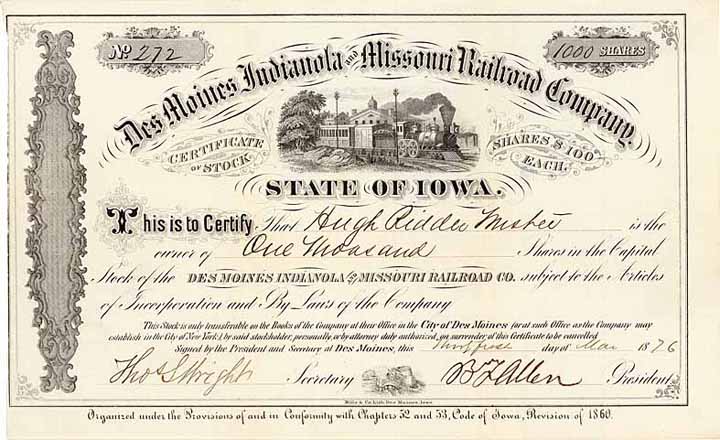 No 272
1000 SHARES
Des Moines Indianola and Missouri Railroad Company.
CERTIFICATE OF STOCK
SHARES $100 EACH.
STATE OF IOWA.
This is to Certify, That Hugh Riddle is the
owner of One Thousand Shares in the Capital
Stock of the DES MOINES INDIANOLA AND MISSOURI RAILROAD CO. subject to the Articles
of Incorporation and By Laws of the Company
This Stock is only transferable on the Books of the Company at their Office in the City of Des Moines (or at such Office as the Company may
establish in the City of New York), by said stockholder, personally, or by attorney duly authorized, on surrender of this Certificate to be cancelled
Signed by the President and Secretary at Des Moines, this day of Mar 1876
Thos S Wright Secretary B F Allen President
Mills & Co. Lith. Des Moines, Iowa
Organized under the Provisions of and in Conformity with Chapters 52 and 53, Code of Iowa, Revision of 1860.